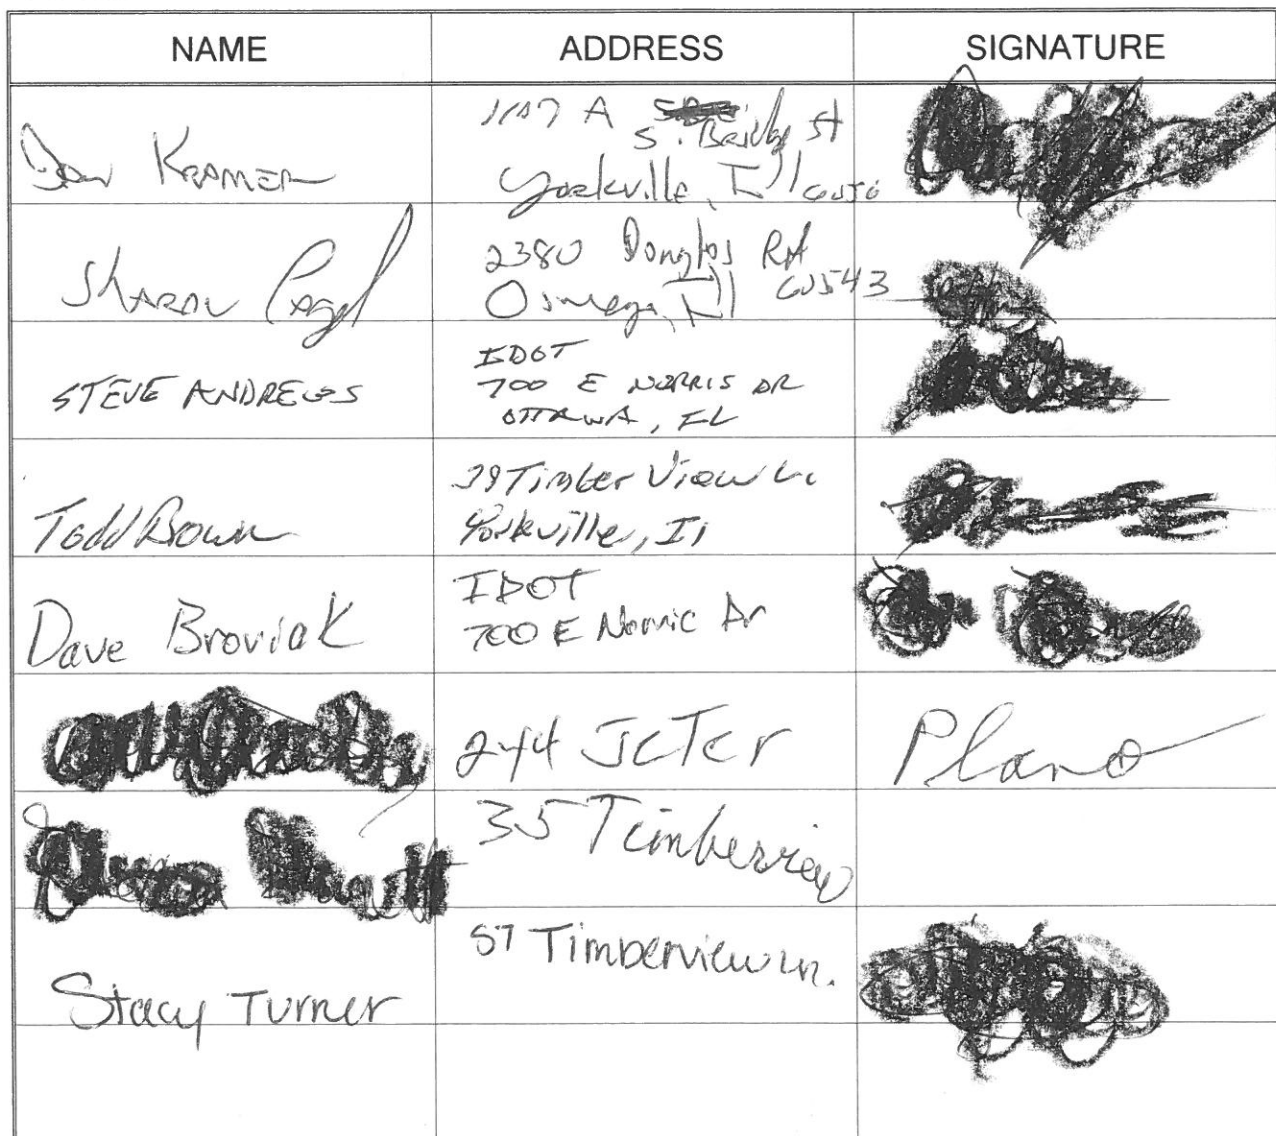 NAME ADDRESS SIGNATURE
Dan Kramer
1107 A
S. Bridge St
Yorkville, Ill
Sharon Pagel
2380 Douglas Rd
Oswego, Ill 60543
STEVE ANDREWS
IDOT
700 E NORRIS DR
OTTAWA, IL
Todd Brown
39 Timber View Ln
Yorkville, Il
Dave Broviak
IDOT
700 E Norric Dr
244 Jeter Plano
35 Timberview
Stacy Turner
57 Timberview Ln.